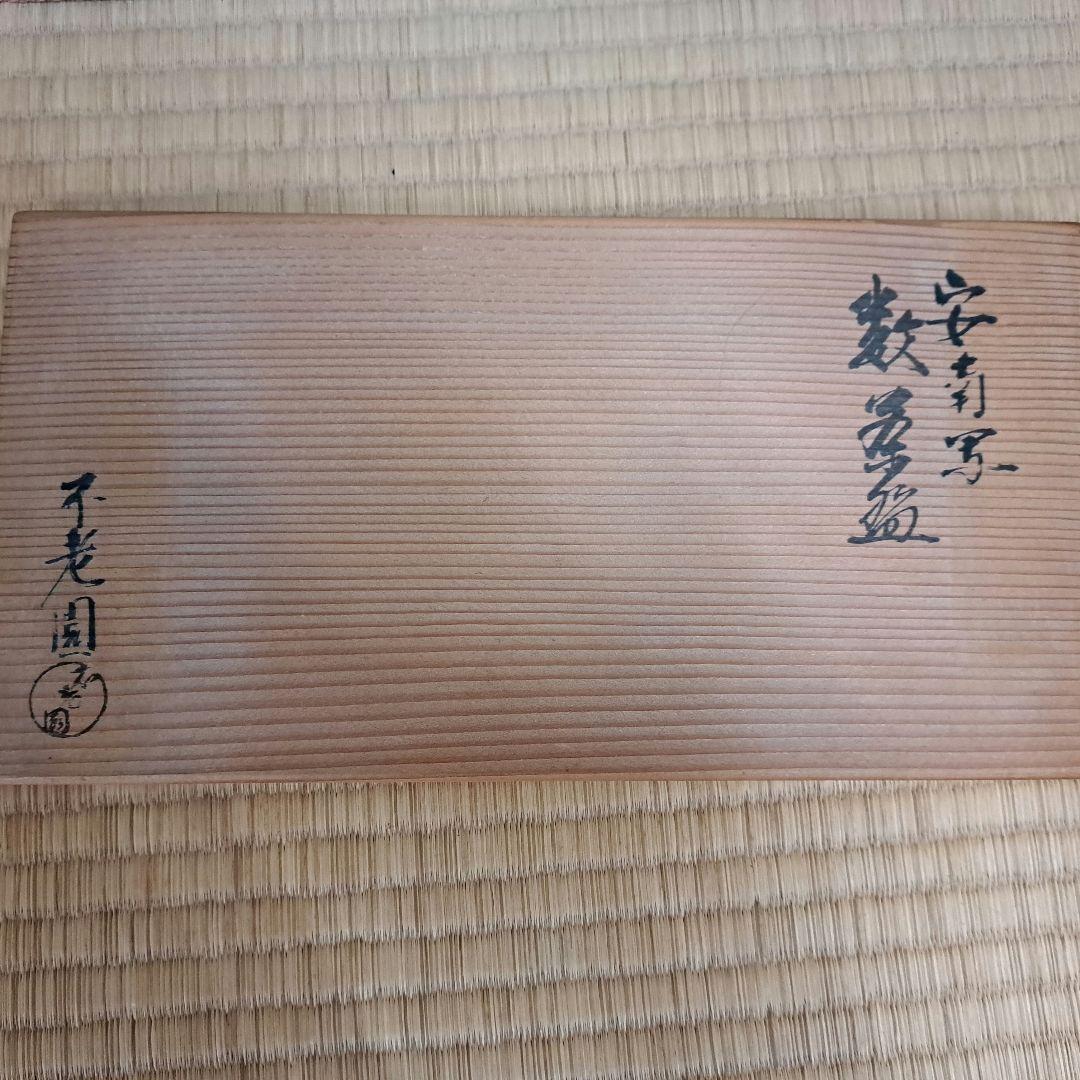 安南写
数茶碗
不老園